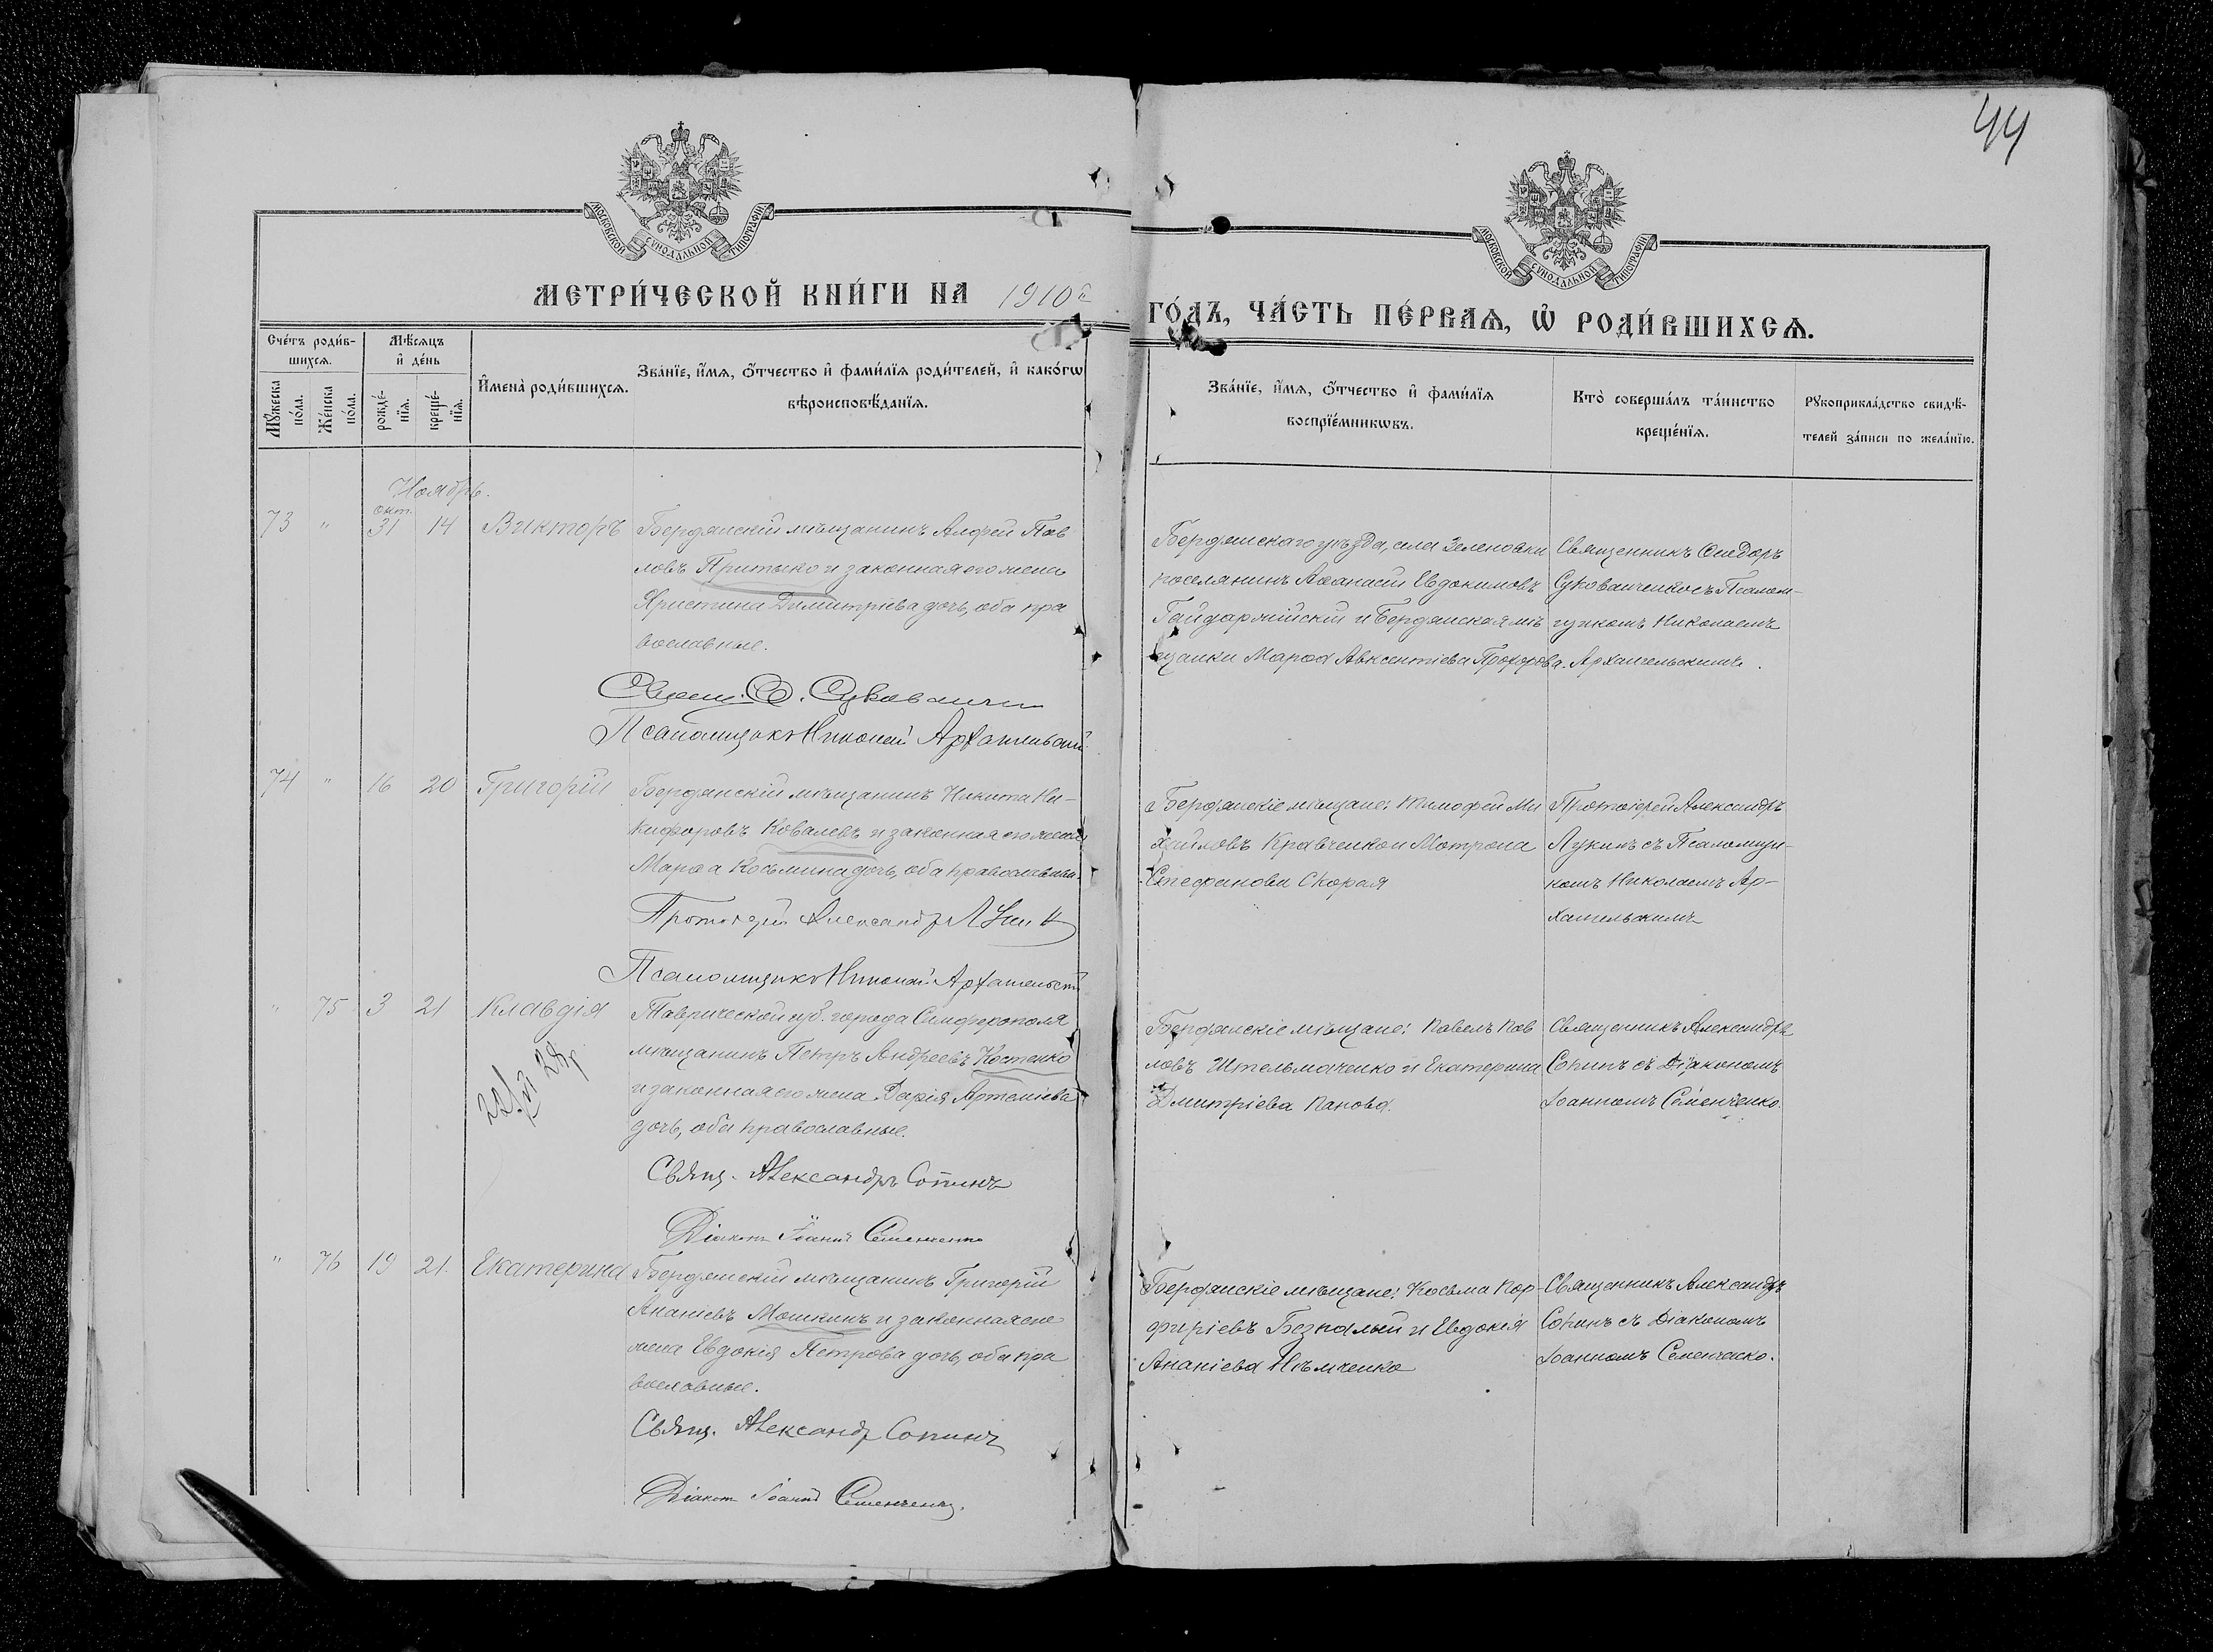 44
МОСКОВСКОЙ СѴНОДАЛЬНОЙ ТИПОГРАФІИ
МОСКОВСКОЙ СѴНОДАЛЬНОЙ ТИПОГРАФІИ
МЕТРИ́ЧЕСКОЙ КНИ́ГИ НА 1910й
ГО́ДЪ, ЧА́СТЬ ПЕ́РВАѦ, Ѡ҆ РОДИ́ВШИХСѦ.
Сче́тъ роди́в-
шихсѧ.
Мꙋ́жеска
по́ла.
Же́нска
по́ла.
Мѣ́сѧцъ
и҆ де́нь
рожде́-
нїѧ.
креще́-
нїѧ.
И҆мена̀ роди́вшихсѧ.
Зва́нїе, и҆́мѧ, ѻ҆́тчество и҆ фами́лїѧ роди́телей, и҆ како́гѡ
вѣроисповѣ́данїѧ.
Зва́нїе, и҆́мѧ, ѻ҆́тчество и҆ фами́лїѧ
воспрїе́мникѡвъ.
Кто̀ соверша́лъ та́инство
креще́нїѧ.
Рꙋкоприкла́дство свидѣ́-
телей за́писи по жела́нїю.
Ноябрь.
73 " окт. 31 14 Викторъ
Бердянскій мѣщанинъ Алфей Пав
ловъ Притыко и законная его жена
Христина Димитріева дочь, оба пра
вославные.
Свящ. Ѳ. Сукованч
Псаломщикъ Николай Архангельскій
Бердянскаго уѣзда, села Зеленовки
поселянинъ Аѳанасій Евдокимовъ
Гайдаржійскій и Бердянская мѣ
щанки Марѳа Авксентіева Прохорова.
Священникъ Ѳеодоръ
Сукованченко съ Псалом-
щикомъ Николаемъ
Архангельскимъ.
74 " 16 20 Григорій
Бердянскій мѣщанинъ Никита Ни-
кифоровъ Ковалевъ и законная его жена
Марѳа Косьмина дочь, оба православные.
Протоіерей Александръ Лукинъ
Псаломщикъ Николай Архангельскій
Бердянскіе мѣщане: Тимофей Ми
хайловъ Кравченко и Матрона
Стефанова Скорая
Протоіерей Александръ
Лукинъ съ Псаломщи-
комъ Николаемъ Ар-
хангельскимъ
" 75 3 21 Клавдія
Таврической губ. города Симферополя
мѣщанинъ Петръ Андреевъ Костенко
и законная его жена Дарія Артеміева
дочь, оба православные.
Свящ. Александръ Сопинъ
Діаконъ Іоаннъ Семенченко
Бердянскіе мѣщане: Павелъ Пав
ловъ Штельмаченко и Екатерина
Дмитріева Панова.
Священникъ Александръ
Сопинъ съ Діакономъ
Іоанномъ Семенченко.
" 76 19 21. Екатерина
Бердянскій мѣщанинъ Григорій
Ананіевъ Мошкинъ и законная его
жена Евдокія Петрова дочь, оба пра
вославные.
Свящ. Александръ Сопинъ
Діаконъ Іоаннъ Семенченко.
Бердянскіе мѣщане: Косьма Пор-
фиріевъ Безпалый и Евдокія
Ананіева Нѣмченко
Священникъ Александръ
Сопинъ съ Діакономъ
Іоанномъ Семенченко.